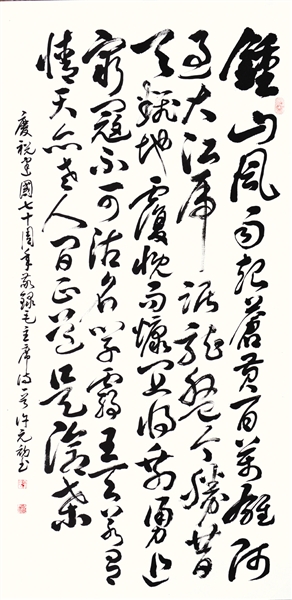 鍾山風雨起蒼黃百萬雄師
過大江虎踞龍盤今勝昔
天翻地覆慨而慷宜將剩勇追
窮寇不可沽名學霸王天若有
情天亦老人間正道是滄桑
慶祝建國七十周年敬錄毛主席詩一首許元書